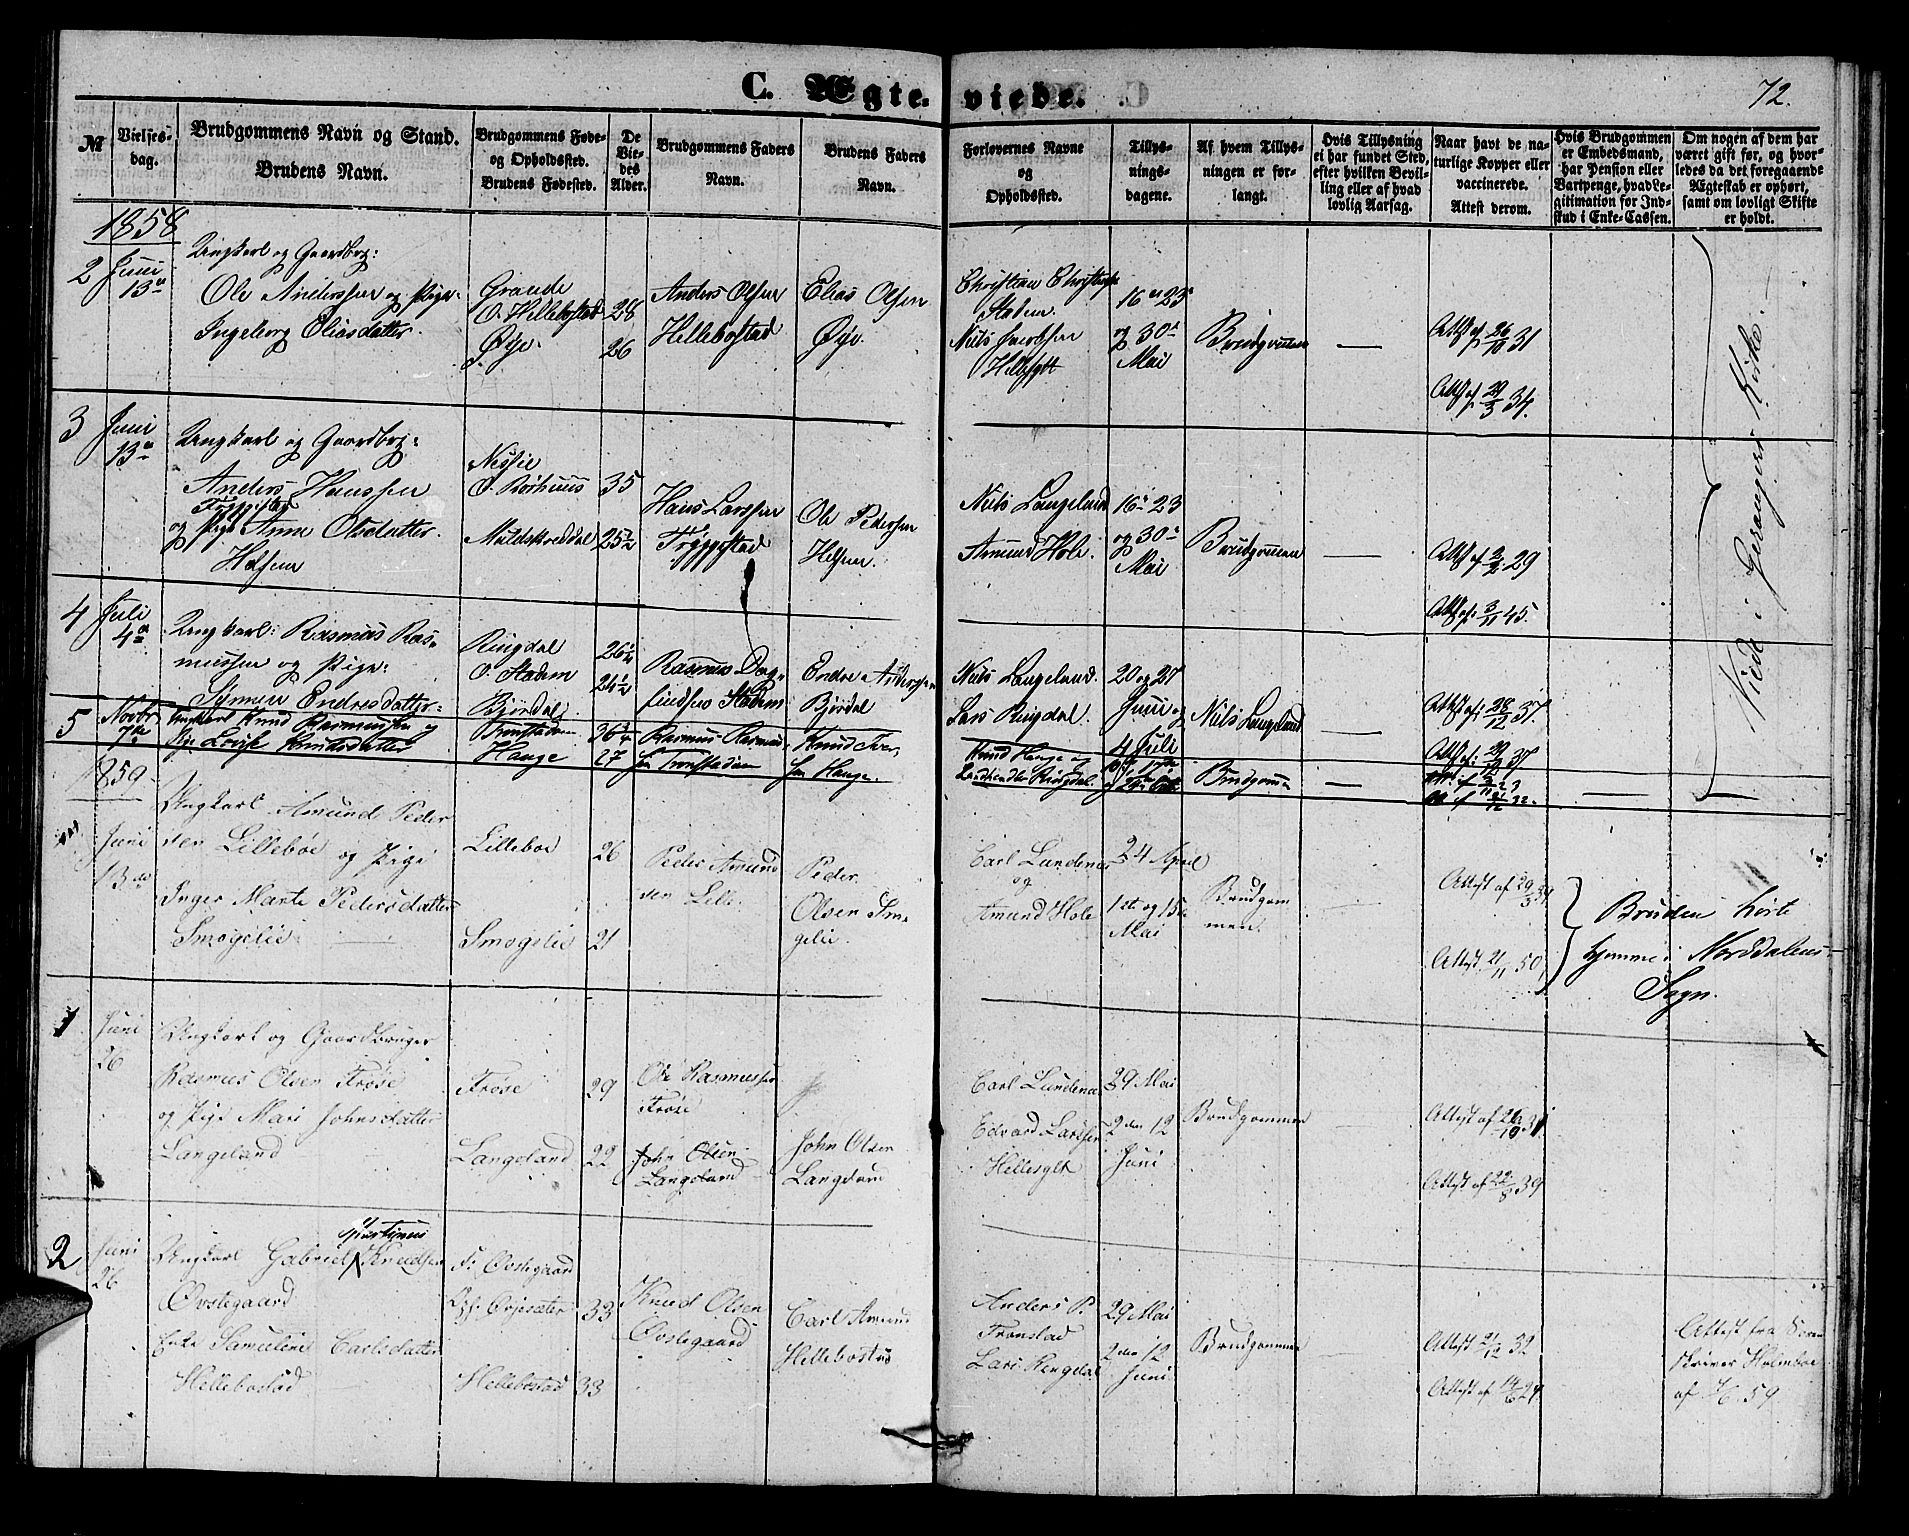 C. Ægte-viede.
72.
№
Vielses-
dag.
Brudgommens Navn og Stand.
Brudens Navn.
Brudgommens Føde-
og Opholdssted.
Brudens Fødested.
De
Vie-
des
Alder.
Brudgommens Faders
Navn.
Brudens Faders
Navn.
Forlovernes Navne
og
Opholdssted.
Tillys-
nings-
dagene.
Af hvem Tillys-
ningen er for-
langt.
Hvis Tillysning
ei har fundet Sted,
efter hvilken Bevil-
ling eller af hvad
lovlig Aarsag.
Naar havt de na-
turlige Kopper eller
vaccinerede.
Attest derom.
Hvis Brudgommen
er Embedsmand,
har Pension eller
Vartpenge, hvad Le-
gitimation for Ind-
skud i Enke-Cassen.
Om nogen af dem har
været gift før, og hvor-
ledes da det foregaaende
Ægteskab er ophørt,
samt om lovligt Skifte
er holdt.
1858
2
Juni
13
Ungkarl og Gaardbrg:
Ole Anderssen og Pige
Ingeborg Eliasdatter.
Grande
O. Hellebostad
Øye
28
26
Anders Olsen
Hellebostad
Elias Olsen
Øye
Christian
Stadem
Niels Jacobsen
Hellesylt
16 23
og 30
Mai
Brudgommen
Att. af 26/10 31
Att. af 29/3 34.
Viede i Gerangers Kirke.
3
Juni
13
Ungkarl og Gaardbrg:
Anders Hanssen
Frøysstad
og Pige Anne Olsdatter.
O. Korhuus
Muldskreddal
35
25½
Hans Larssen
Ole Pederssen
Niels Langeland
Amund Hole.
16 23
og 30
Mai
Brudgommen
Att. af 29
Att. af 3/11 45.
4
Juli
4
Ungkarl: Rasmus Ras-
mussen og Pige:
Endresdatter
Ringdal
O. Stadem
Bjørdal
26¼
24½
Rasmus Dag-
findsen Stadem
Endre
Bjørdal
Niels Langeland.
Lars Ringdal.
20 og 27
Juni og
4 Juli
Niels Langeland
Att. af 28/12 37.
Att. af 37
5
Novbr
7de
Ungkarl Knud Rasmussen og
Pige Lovise Knudsdatter
Tronstadem
Hauge
26¾
27
Rasmus Rasmus-
sen Tronstadem
Knud Iver-
sen Hauge.
Knud Hauge og
Ringdal.
Brudgom-
1859.
Juni
13de
Ungkarl Amund Peder
sen Lillebøe og Pige
Inger Marte Pedersdatter
Smogelie
Lillebøe
Smogelie
26
21
Peder Amund
sen Lille.
Peder
Olsen Smo
gelie.
Carl Lundenæs
og
Amund Hole
24 April
1ste og 15
Mai
Brudgom
men.
Attest af 29/3 34
Attest 21/11 50
Bruden hørte
hjemme i Norddalens
Sogn.
1
Juni
26
Ungkarl og Gaardbruger
Rasmus Olsen Frøse
og Pige Mari Johnsdatter
Langeland
Frøse
Langeland
29
22
Ole Rasmussen
Frøse
John Olsen
Langeland
John Olsen
Langeland
Carl Lundenæs
Edvard Larssen
Hellesylt
29 Mai
2den 12
Juni
Brudgommen
Attest af 26/10 31
Attest af 22/8 39
2
Juni
26
Martinus
Ungkarl Gabriel Knudsen
Øvstegaard
Enke Samueline Carlsdatter
Hellebostad
F. Øvstegaard
Oph. Ørjesæter
Hellebostad
33
33
Knud Olsen
Øvstegaard
Carl Amund
Hellebostad
Anders P.
Tronstad
Lars Ringdal
29 Mai
2den 12
Juni
Brudgommen
Attest 21/12 32
Attest af 14/6 27
Attest fra Soren
skriver Holmboe
af 1/6. 59